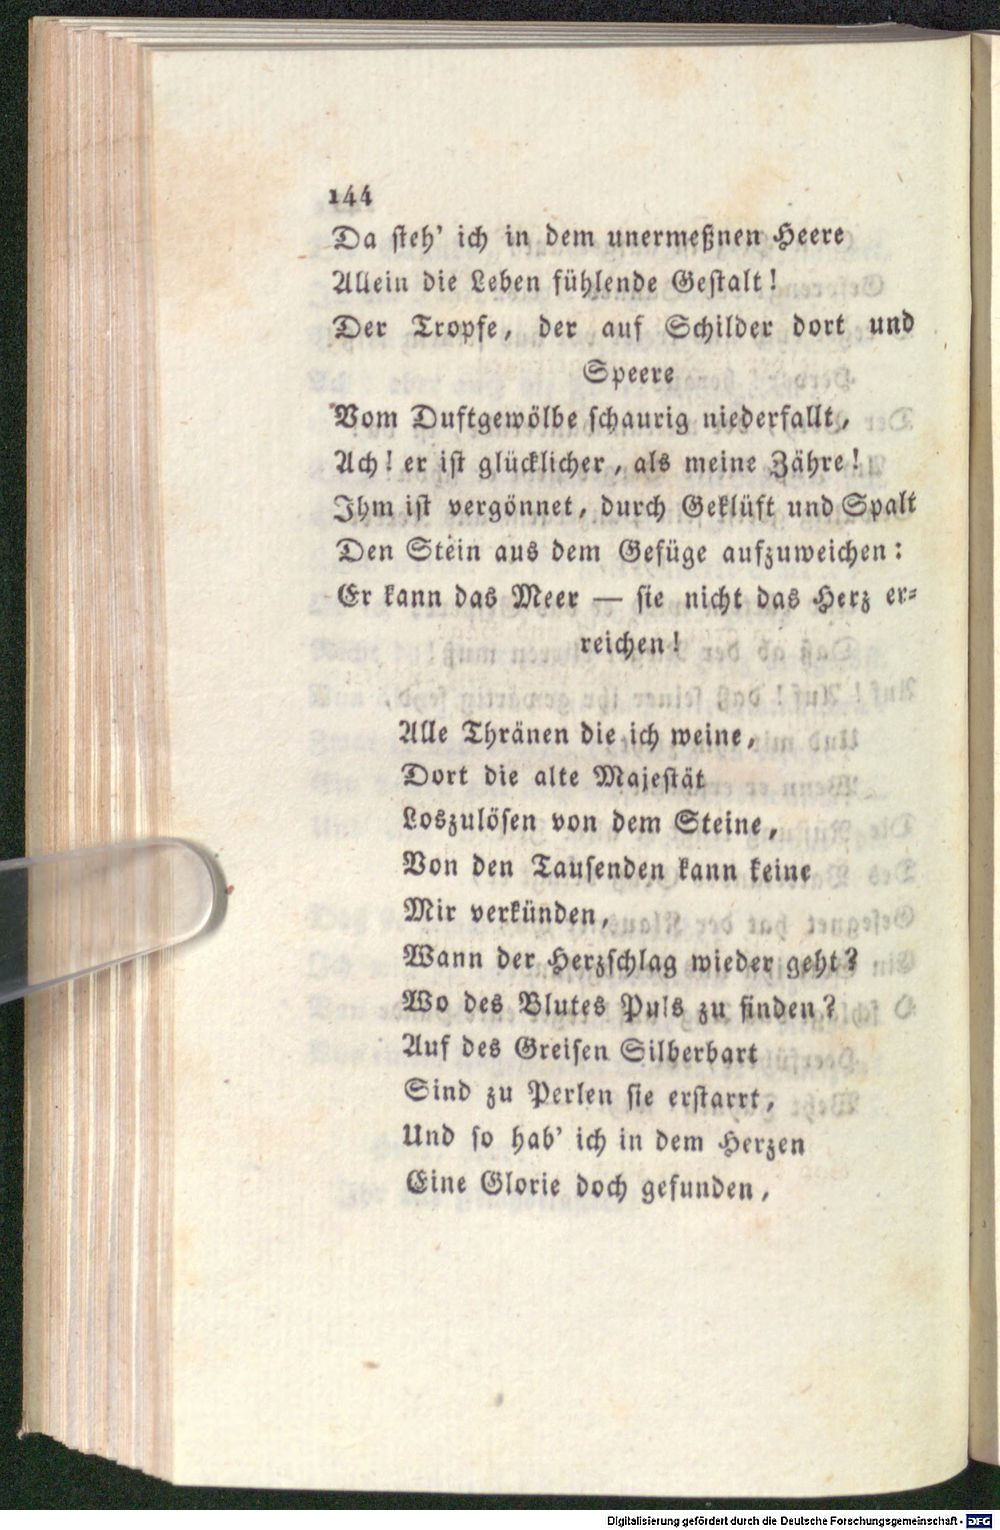 144
Da steh' ich in dem unermeßnen Heere
Allein die Leben fühlende Gestalt!
Der Tropfe, der auf Schilder dort und
Speere
Vom Duftgewölbe schaurig niederfallt,
Ach! er ist glücklicher, als meine Zähre!
Ihm ist vergönnet, durch Geklüft und Spalt
Den Stein aus dem Gefüge aufzuweichen:
Er kann das Meer — sie nicht das Herz er-
reichen!
Alle Thränen die ich weine,
Dort die alte Majestät
Loszulösen von dem Steine,
Von den Tausenden kann keine
Mir verkünden,
Wann der Herzschlag wieder geht?
Wo des Blutes Puls zu finden?
Auf des Greisen Silberbart
Sind zu Perlen sie erstarrt,
Und so hab' ich in dem Herzen
Eine Glorie doch gefunden,
Digitalisierung gefördert durch die Deutsche Forschungsgemeinschaft - DFG